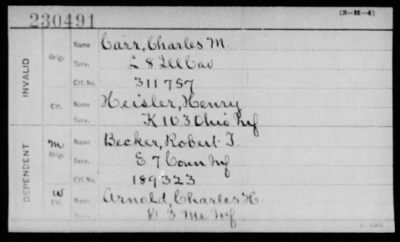 230491
(3-H-4)
INVALID
Orig. Name Carr, Charles M.
Serv. L 8 Ill Cav
Ctf. No. 311757
Ctf. Name Heisler, Henry
Serv. K 103 Ohio Inf
DEPENDENT
M Orig. Name Becker, Robert T.
Serv. E 7 Conn Inf
Ctf. No. 189323
W Ctf. Name Arnold, Charles H.
Serv. 3 Me Inf